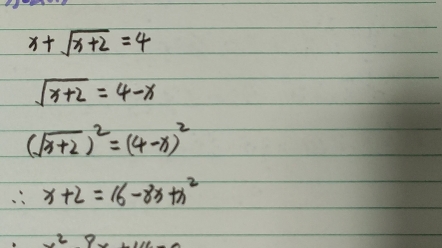 x + √(x+2) = 4
√(x+2) = 4-x
(√(x+2))² = (4-x)²
∴ x+2 = 16-8x+x²